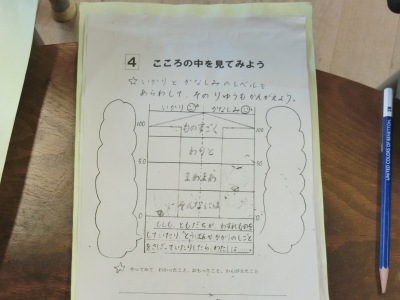 4 こころの中を見てみよう
☆いかりと かなしみ のレベルを
あらわして、その りゆうも かんがえよう。
いかり かなしみ
100 ものすごく 100
わりと
50 まあまあ 50
そんなには
0 0
もしも、ともだちが わすれものを
していたり、とうばんやかかりのしごと
をさぼっていたりしたら、わたしは
☆ やってみて わかったこと、おもったこと、かんがえたこと
UNITED COLORS OF BENETTON